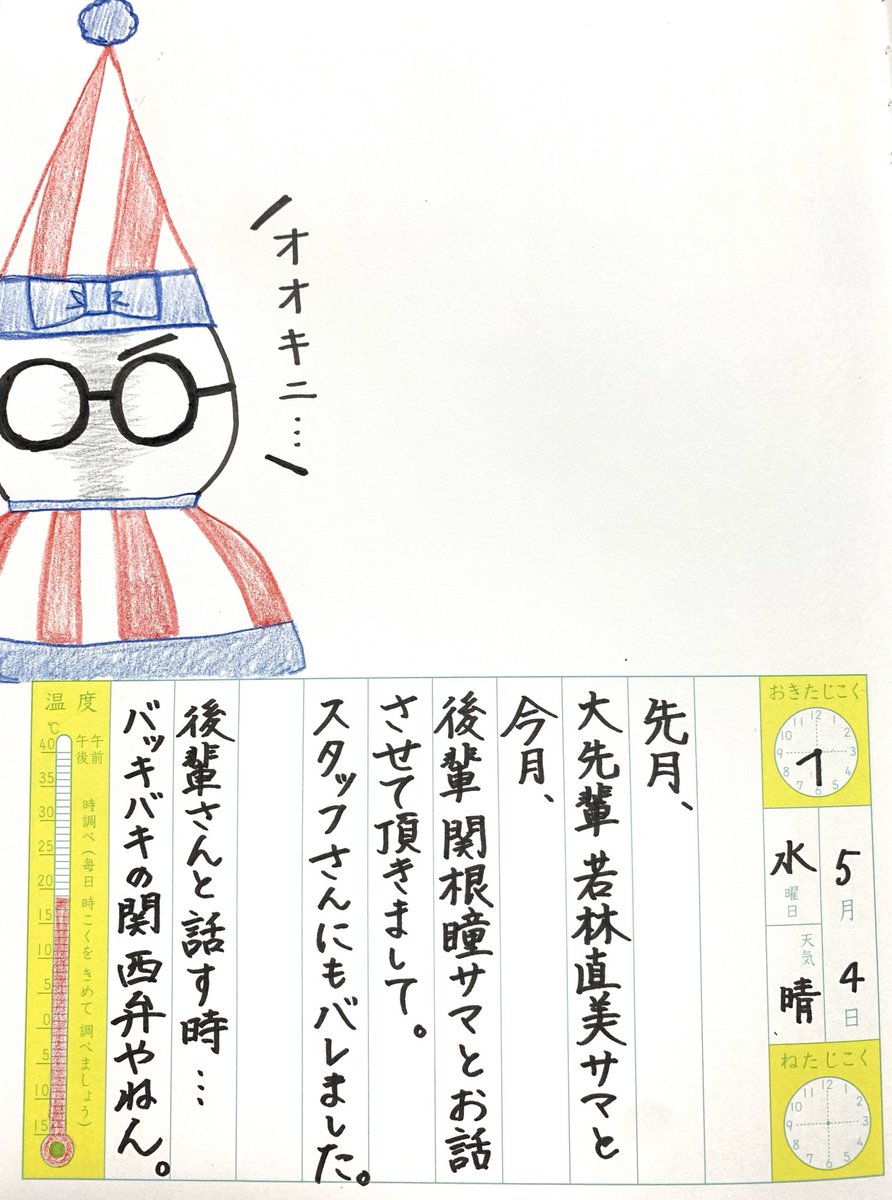 オオキニ…
おきたじこく
12
1
2
3
4
5
6
7
8
9
10
11
1
5月4日
水曜日
天気
晴
ねたじこく
12
1
2
3
4
5
6
7
8
9
10
11
先月、
大先輩 若林直美サマと
今月、
後輩 関根瞳サマとお話
させて頂きまして。
スタッフさんにもバレました。
後輩さんと話す時…
バッキバキの関西弁やねん。
温度
℃
午前
午後
時調べ(毎日 時こくを きめて 調べましょう)
40
35
30
25
20
15
10
5
0
5
10
15